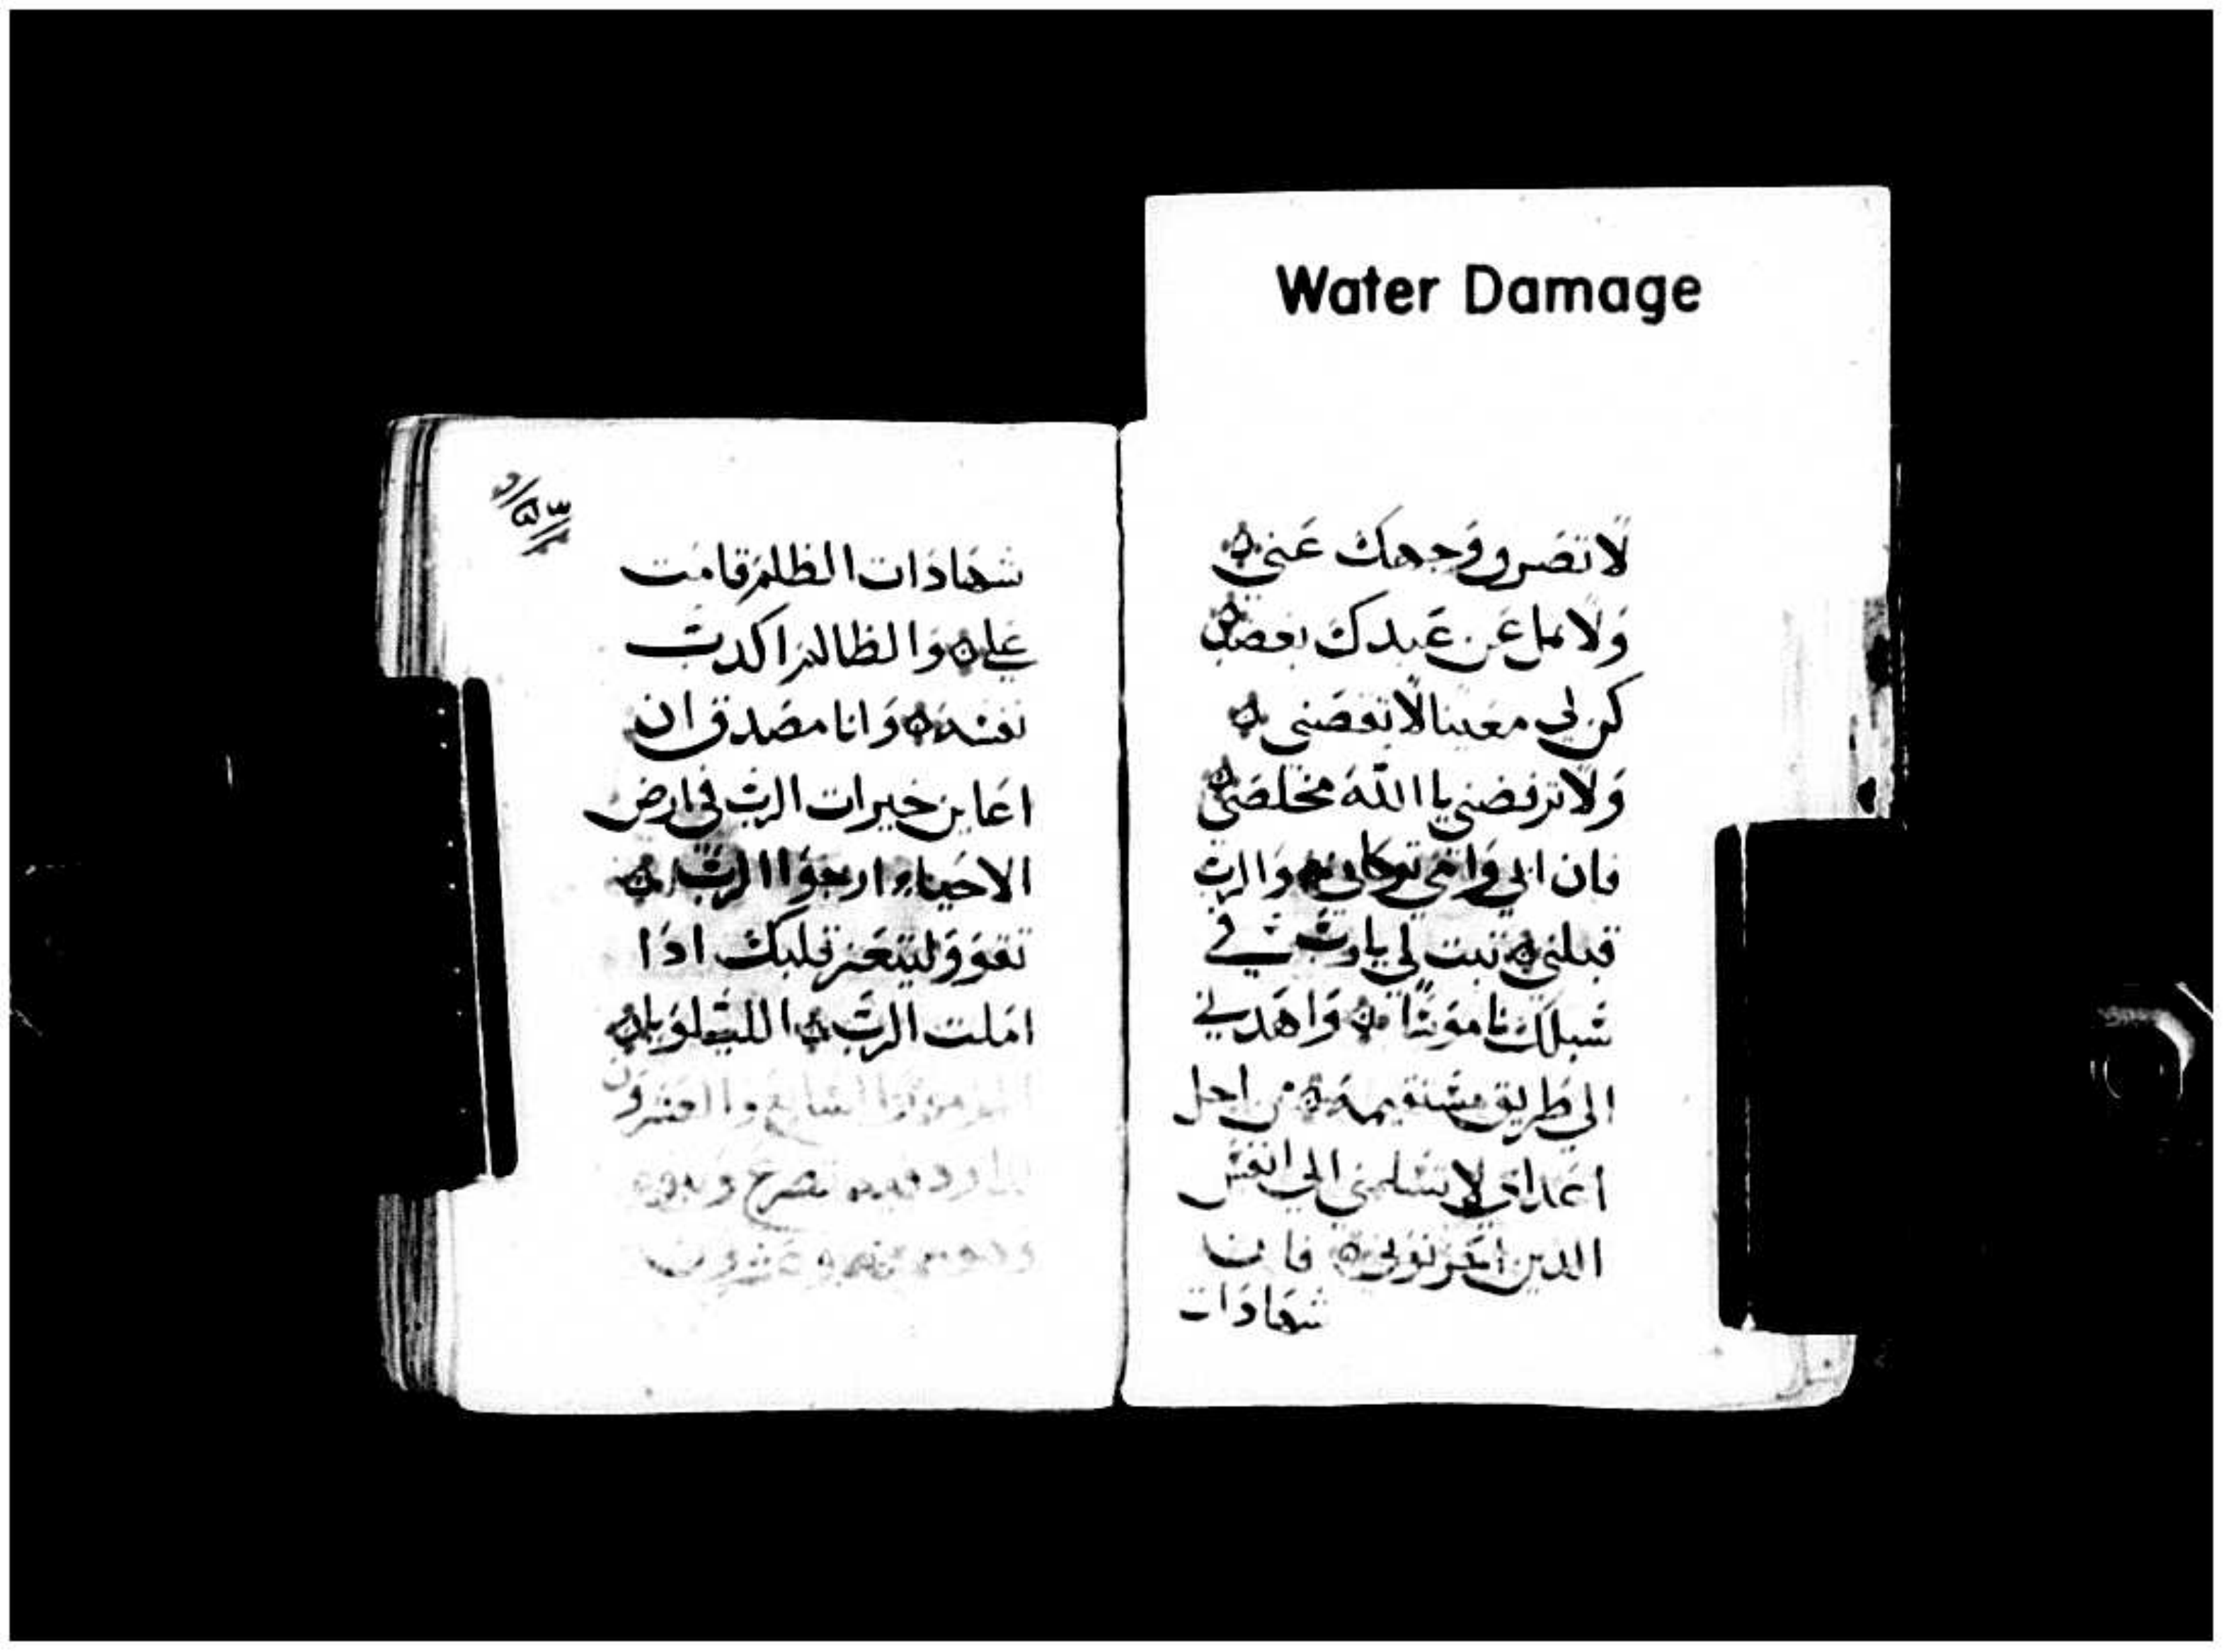 Water Damage
لا تصرف وجهك عني
ولا تمل عن عبدك بغضب
كن لي معينا لا تقصني
ولا ترفضني يا الله مخلصي
فان ابي وامي تركاني والرب
قبلني ثبت لي يا رب في
سبلك ناموسا واهدني
الي طريق مستقيمه من اجل
اعداي لا تسلمني الي انفس
الدين احزنوني فان
شهادات
شهادات الظلم قامت
علي والظالم اكدت
نفسه وانا مصدق ان
اعاين خيرات الرب في ارض
الاحياء ارجوا الرب
تقوو ليتعز قلبك ادا
املت الرب الليلويا
السابع والعشرون
تصرخ
وعشرون